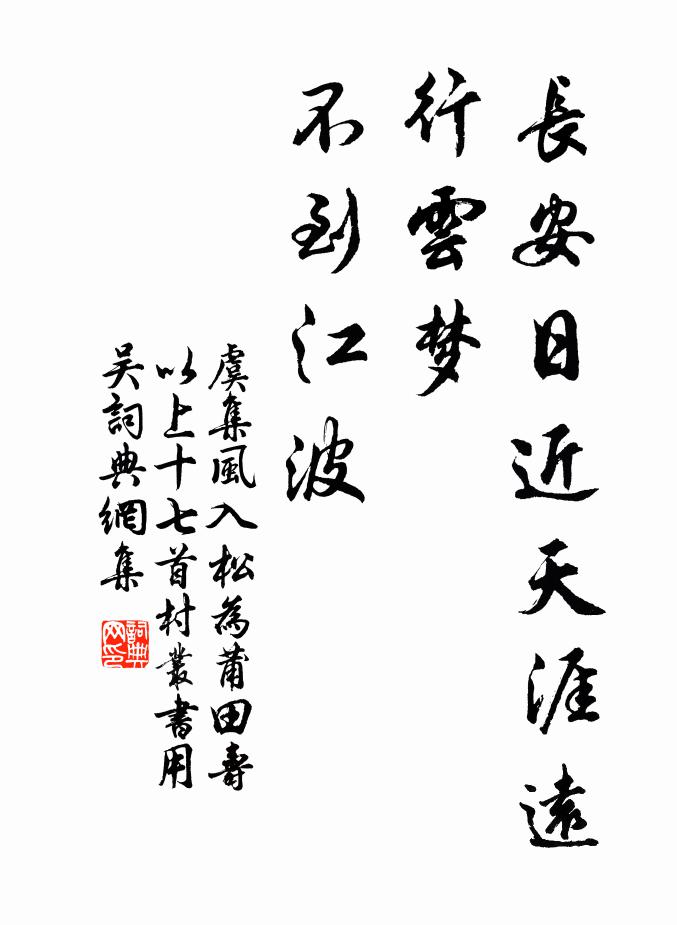 長安日近天涯遠
行雲梦
不到江波
虞集風入松為莆田壽
以上十七首村叢書用
吴詞典網集
詞典網印